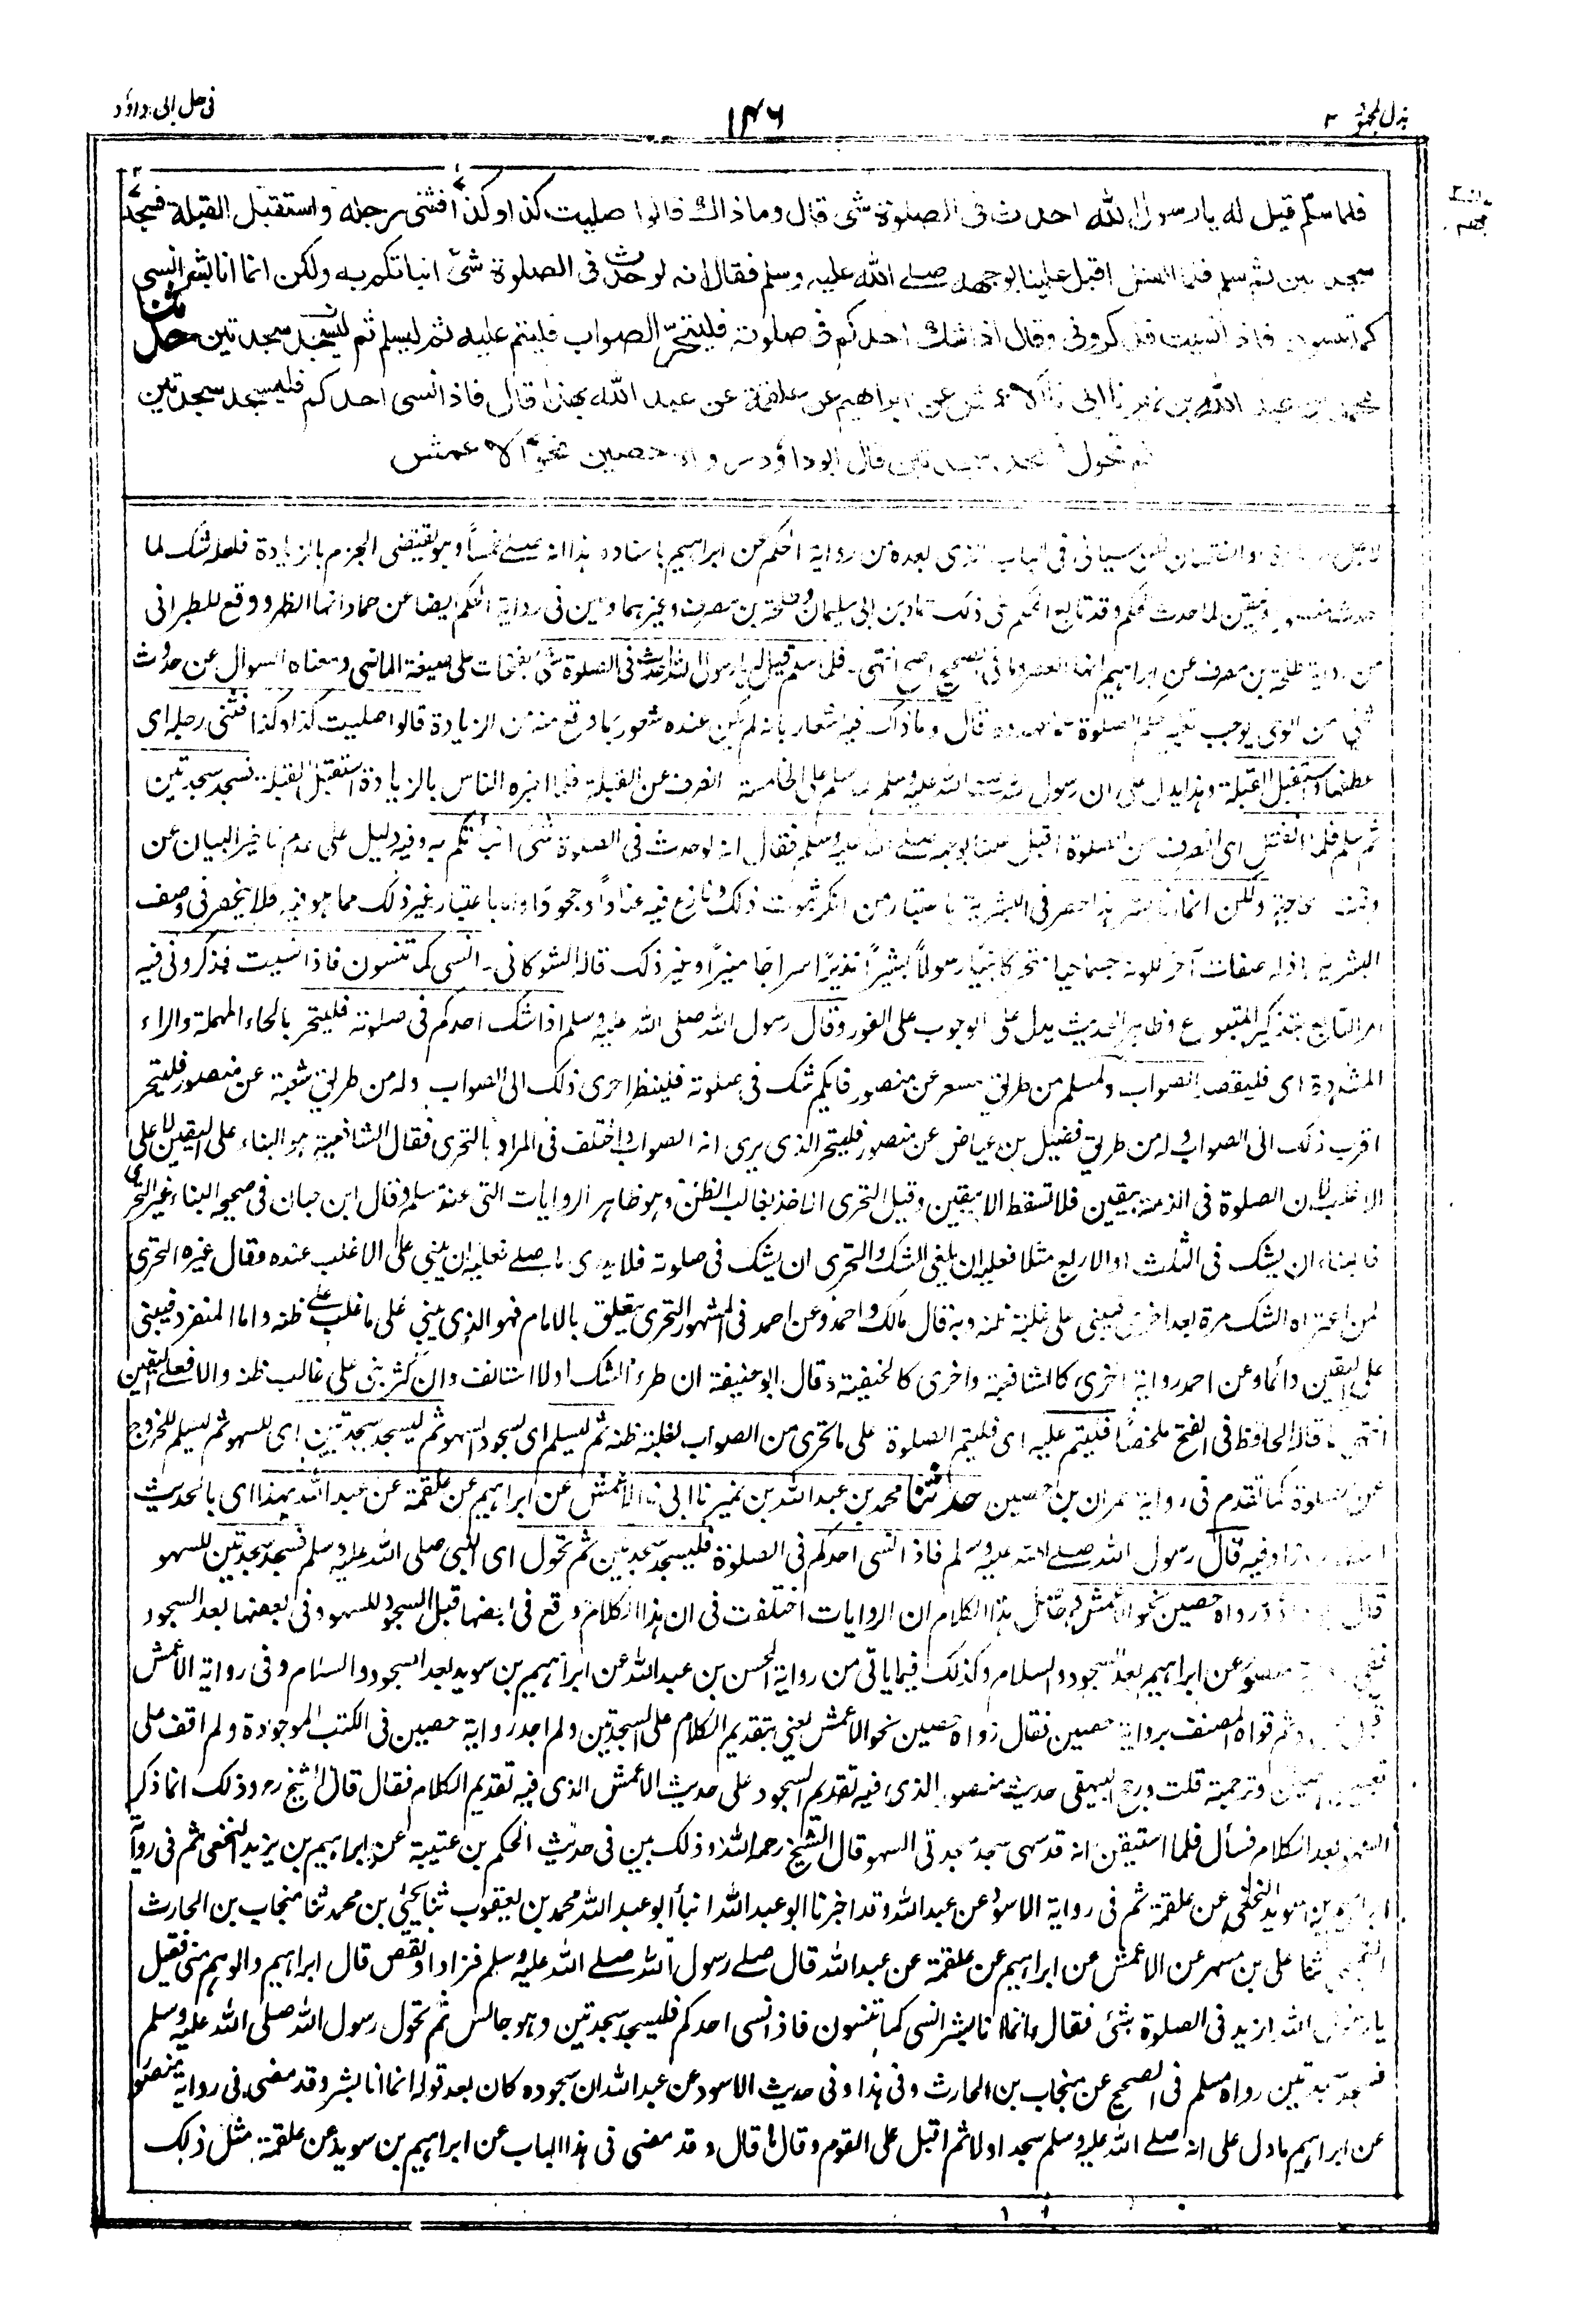 بذل المجهود ٢
١٤٦
فى حل ابى داؤد
فلما سلم قيل له يا رسول الله احدث فى الصلوة شئ قال وما ذاك قالوا صليت كذا وكذا فثنى رجله واستقبل القبلة فسجد
سجدتين ثم سلم فلما انفتل اقبل علينا بوجهه صلے الله عليه وسلم فقال انه لو حدث فى الصلوة شئ انبأتكم به ولكن انما انا بشر انسى
كما تنسون فاذا نسيت فذكرونى وقال اذا شك احدكم فى صلوته فليتحر الصواب فليتم عليه ثم ليسلم ثم ليسجد سجدتين حدثنا
محمد بن عبد الله بن نمير نا ابى نا الاعمش عن ابراهيم عن علقمة عن عبد الله بهذا قال فاذا نسى احدكم فليسجد سجدتين
ثم تحول فسجد سجدتين قال ابو داؤد رواه حصين نحو الاعمش
والنقصان لكن سياتى فى الباب الذى بعده من رواية الحكم عن ابراهيم باسناده هذا انه صلے خمسا وهو يقتضى الجزم بالزيادة فلعله شك لما
حدث منصور وتيقن لما حدث الحكم وقد تابع الحكم على ذلك حماد بن ابى سليمان وطلحة بن مصرف وغيرهما وعين فى رواية الحكم ايضا عن حماد انها الظهر ووقع للطبرانى
من رواية طلحة بن مصرف عن ابراهيم انها العصر وما فى الصحيح اصح انتهى۔ فلما سلم قيل له يا رسول الله احدث فى الصلوة شئ بفتحات على صيغة الماضى ومعناه السوال عن حدوث
شئ من الوحى يوجب تغيير حكم الصلوة قال وما ذاك فيه اشعار بانه لم يكن عنده شعور بما وقع منه من الزيادة قالوا صليت كذا وكذا فثنى رجله اى
عطفها واستقبل القبلة وهذا يدل على ان رسول الله صلے الله عليه وسلم لما سلم على الخامسة انصرف عن القبلة فلما اخبره الناس بالزيادة استقبل القبلة فسجد سجدتين
ثم سلم فلما انفتل اى انصرف من الصلوة اقبل علينا بوجهه صلے الله عليه وسلم فقال انه لو حدث فى الصلوة شئ انبأتكم به وفيه دليل على عدم تاخير البيان عن
وقت الحاجة ولكن انما انا بشر هذا حصر فى البشرية باعتبار من انكر ثبوت ذلك ونازع فيه عنادا وجحودا واما باعتبار غير ذلك مما هو فيه فلا ينحصر فى وصف
البشرية اذ له صفات آخر ككونه جسما حيا متحركا نبيا رسولا بشيرا نذيرا سراجا منيرا وغير ذلك قاله الشوكانى۔ انسى كما تنسون فاذا نسيت فذكرونى فيه
امر التابع بتذكير المتبوع وظاهر الحديث يدل على الوجوب على الفور وقال رسول الله صلى الله عليه وسلم اذا شك احدكم فى صلوته فليتحر بالحاء المهملة والراء
المشددة اى فليقصد الصواب ولمسلم من طريق مسعر عن منصور فايكم شك فى صلوته فلينظر احرى ذلك الى الصواب وله من طريق شعبة عن منصور فليتحر
اقرب ذلك الى الصواب وله من طريق فضيل بن عياض عن منصور فليتحر الذى يرى انه الصواب واختلف فى المراد بالتحرى فقال الشافعية هو البناء على اليقين لا على
الاغلب لان الصلوة فى الذمة بيقين فلا تسقط الا بيقين وقيل التحرى الاخذ بغالب الظن وهو ظاهر الروايات التى عند مسلم وقال ابن حبان فى صحيحه البناء غير التحرى
فالبناء ان يشك فى الثلث او الاربع مثلا فعليه ان يلغى الشك والتحرى ان يشك فى صلوته فلا يدرى ما صلے فعليه ان يبنى على الاغلب عنده وقال غيره التحرى
لمن اعتراه الشك مرة بعد اخرى فيبنى على غلبة ظنه وبه قال مالك واحمد وعن احمد فى المشهور التحرى يتعلق بالامام فهو الذى يبنى على ما غلب على ظنه واما المنفرد فيبنى
على اليقين دائما وعن احمد رواية اخرى كالشافعية واخرى كالحنفية وقال ابو حنيفة ان طرء الشك اولا استانف وان كثر بنى على غالب ظنه والا فعلى اليقين
انتهى ما قاله الحافظ فى الفتح ملخصا فليتم عليه اى فليتم الصلوة على ما تحرى من الصواب لغلبة ظنه ثم ليسلم اى لسجود السهو ثم ليسجد سجدتين اى للسهو ثم ليسلم للخروج
عن الصلوة كما تقدم فى رواية عمران بن حصين حدثنا محمد بن عبد الله بن نمير نا ابى نا الاعمش عن ابراهيم عن علقمة عن عبد الله بهذا اى بالحديث
وفيه قال رسول الله صلے الله عليه وسلم فاذا نسى احدكم فى الصلوة فليسجد سجدتين ثم تحول اى النبى صلى الله عليه وسلم فسجد سجدتين للسهو
قال ابو داؤد رواه حصين نحو الاعمش وحاصل هذا الكلام ان الروايات اختلفت فى ان هذا الكلام وقع فى بعضها قبل السجود للسهو وفى بعضها بعد السجود
ففى رواية منصور عن ابراهيم بعد السجود والسلام وكذلك فيما ياتى من رواية الحسن بن عبد الله عن ابراهيم بن سويد بعد السجود والسلام وفى رواية الاعمش
ثم قواه المصنف برواية حصين فقال رواه حصين نحو الاعمش يعنى بتقديم الكلام على السجدتين ولم اجد رواية حصين فى الكتب الموجودة ولم اقف على
تعيين حصين وترجمته قلت ورجح البيهقى حديث منصور الذى فيه تقديم السجود على حديث الاعمش الذى فيه تقديم الكلام فقال قال الشيخ ره وذلك انما ذكر
السهو بعد الكلام فسأل فلما استيقن انه قد سهى سجد سجدتى السهو قال الشيخ رحمه الله وذلك بين فى حديث الحكم بن عتيبة عن ابراهيم بن يزيد النخعى ثم فى رواية
ابراهيم بن سويد النخعى عن علقمة ثم فى رواية الاسود عن عبد الله وقد اخبرنا ابو عبد الله انبأ ابو عبد الله محمد بن يعقوب ثنا يحيى بن محمد ثنا منجاب بن الحارث
التميمى ثنا على بن مسهر عن الاعمش عن ابراهيم عن علقمة عن عبد الله قال صلے رسول الله صلے الله عليه وسلم فزاد او نقص قال ابراهيم والوهم منى فقيل
يا رسول الله ازيد فى الصلوة شئ فقال انما انا بشر انسى كما تنسون فاذا نسى احدكم فليسجد سجدتين وهو جالس ثم تحول رسول الله صلى الله عليه وسلم
فسجد سجدتين رواه مسلم فى الصحيح عن منجاب بن الحارث وفى هذا وفى حديث الاسود عن عبد الله ان سجوده كان بعد قوله انما انا بشر وقد مضى فى رواية منصور
عن ابراهيم ما دل على انه صلے الله عليه وسلم سجد اولا ثم اقبل على القوم وقال ما قال وقد مضى فى هذا الباب عن ابراهيم بن سويد عن علقمة مثل ذلك